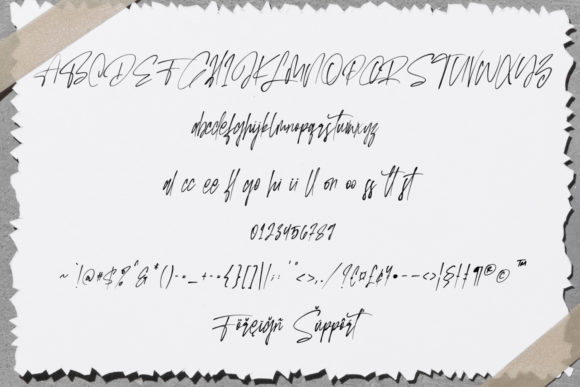 ABCDEFGHIJKLMNOPQRSTUVWXYZ
abcdefghijklmnopqrstuvwxyz
al cc ee fl go hi ii ll on oo ss tt st
0123456789
Föreigñ Šüppört